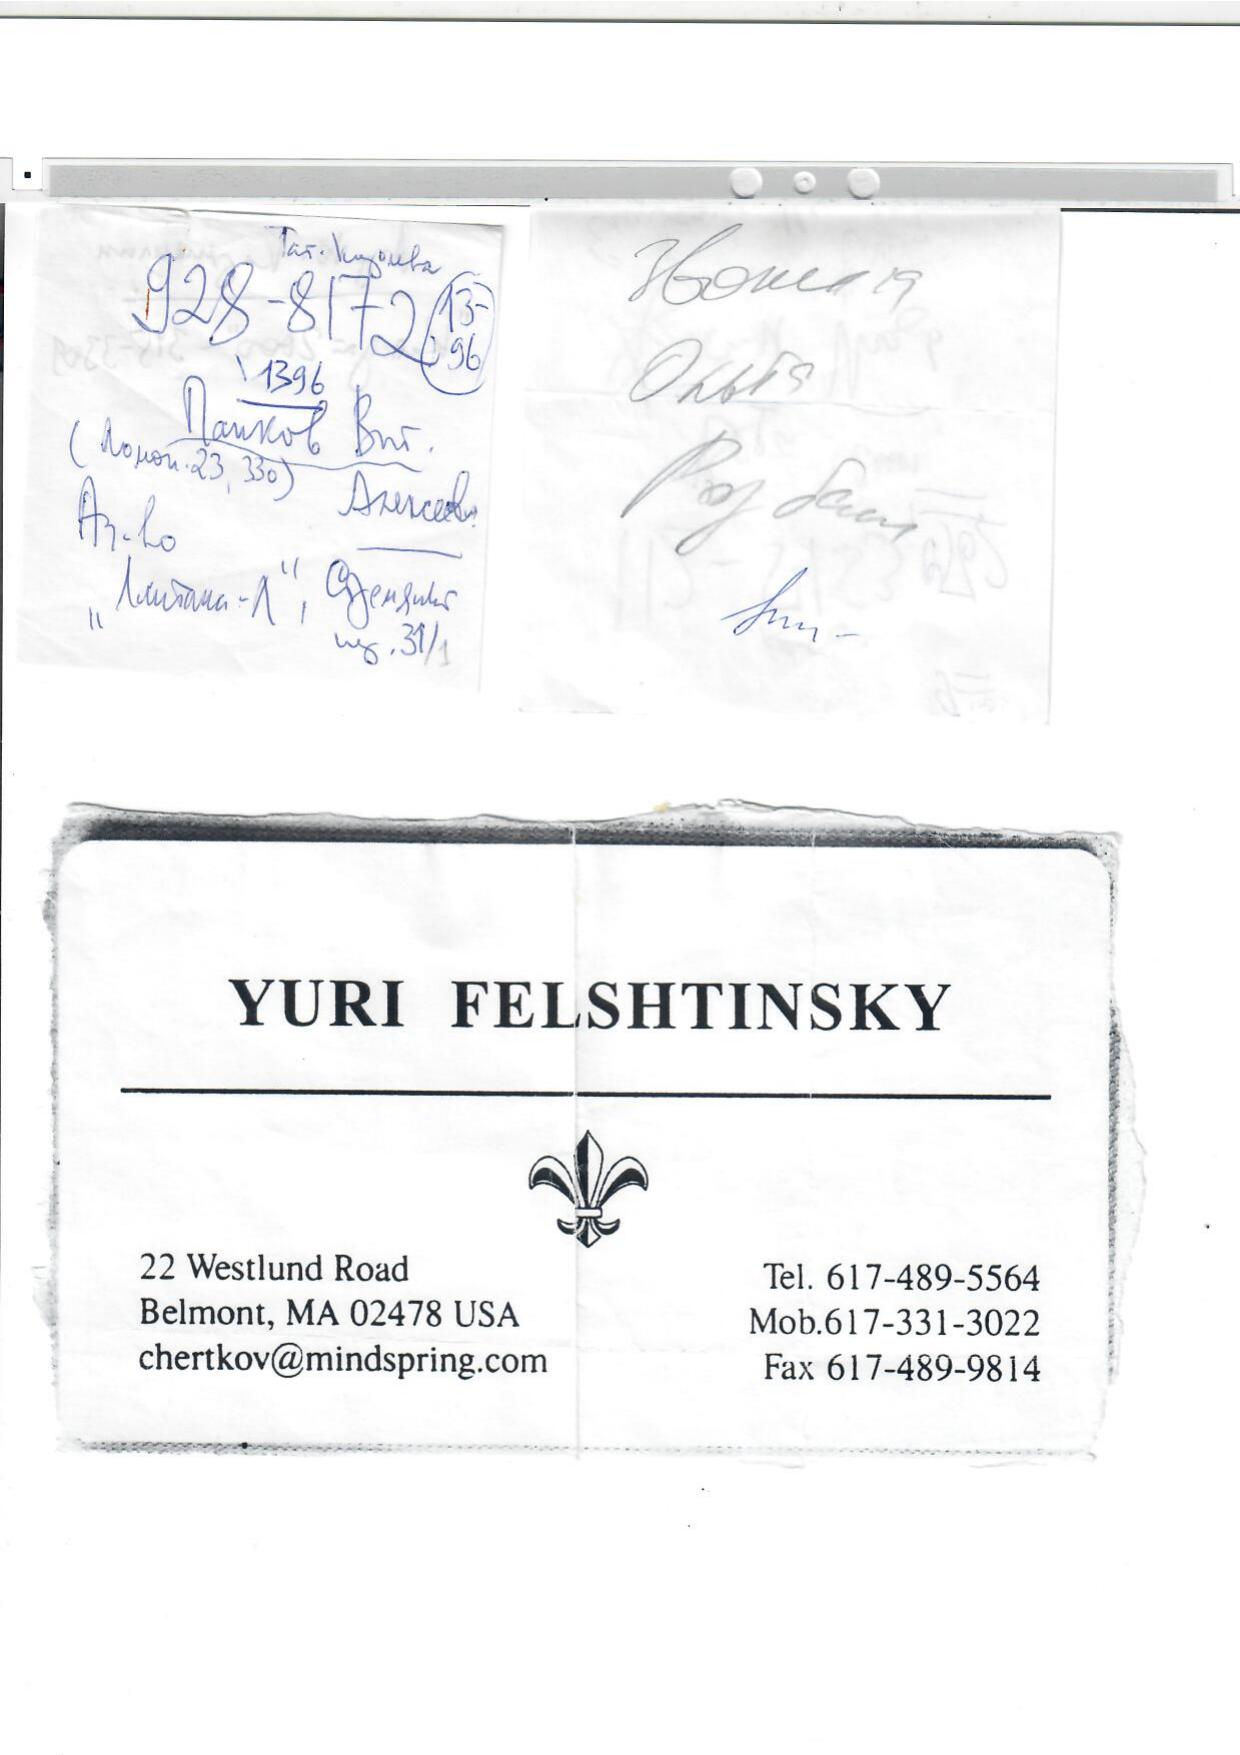 928-8172 13-96
1396
Панков Вит.
(Ломон. 23, 330)
Алексеевич
Аг-во
31/1
Звонила
Ольга
YURI FELSHTINSKY
22 Westlund Road
Belmont, MA 02478 USA
chertkov@mindspring.com
Tel. 617-489-5564
Mob.617-331-3022
Fax 617-489-9814